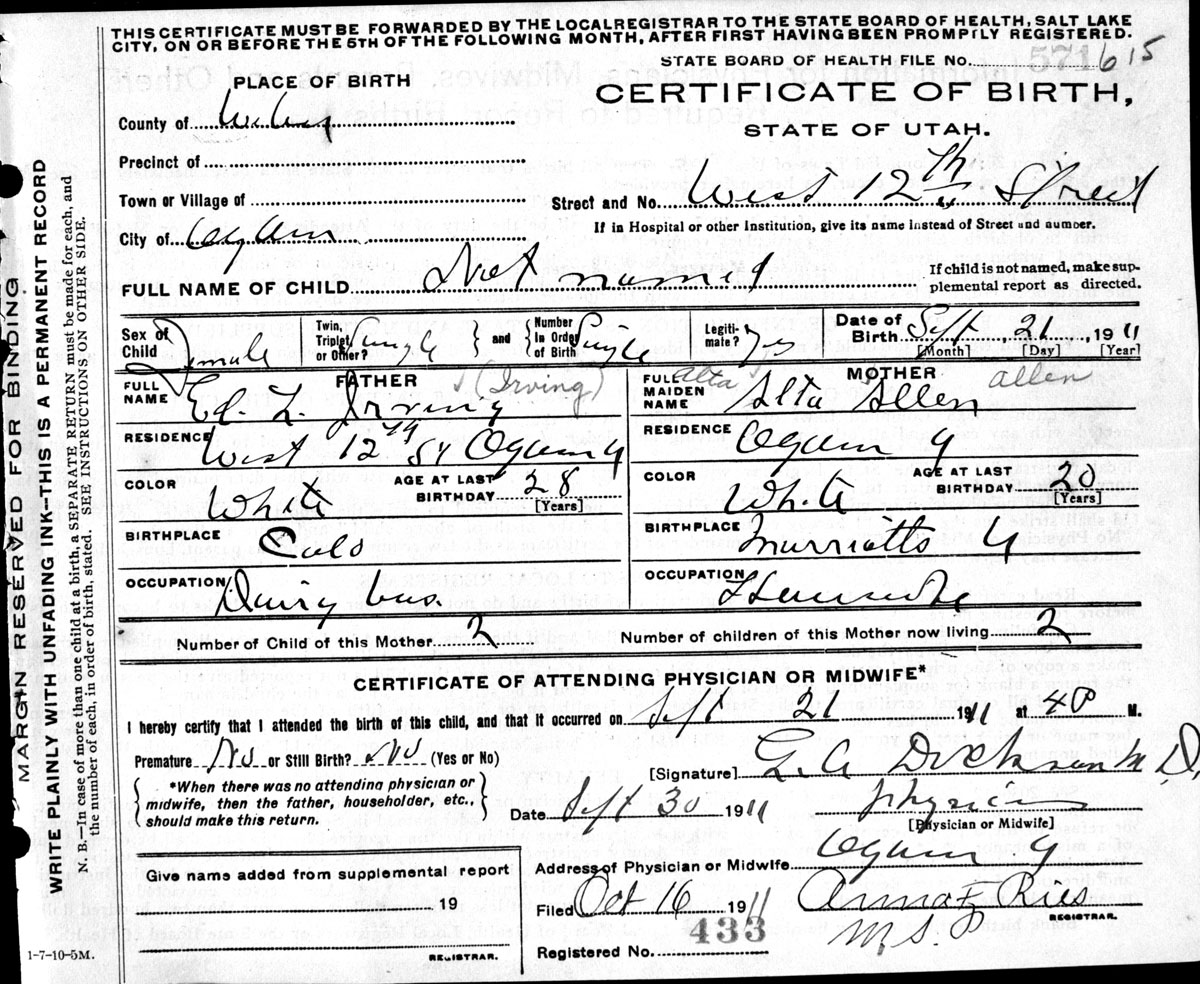 THIS CERTIFICATE MUST BE FORWARDED BY THE LOCAL REGISTRAR TO THE STATE BOARD OF HEALTH, SALT LAKE
CITY, ON OR BEFORE THE 5TH OF THE FOLLOWING MONTH, AFTER FIRST HAVING BEEN PROMPTLY REGISTERED.
STATE BOARD OF HEALTH FILE No. 571615
PLACE OF BIRTH
CERTIFICATE OF BIRTH,
STATE OF UTAH.
County of Weber
Precinct of
Town or Village of
Street and No. West 12th Street
If in Hospital or other Institution, give its name instead of Street and number.
City of Ogden
FULL NAME OF CHILD Not named
If child is not named, make sup-
plemental report as directed.
Sex of Child Female
Twin, Triplet, or Other? Single and Number In Order of Birth Single
Legiti-mate? Yes
Date of Birth Sept 21 1911
[Month] [Day] [Year]
FATHER (Irving)
FULL NAME Ed. L. Irving
MOTHER Alta Allen
FULL MAIDEN NAME Alta Allen
RESIDENCE West 12th St Ogden
RESIDENCE Ogden
COLOR White AGE AT LAST BIRTHDAY 28 [Years]
COLOR White AGE AT LAST BIRTHDAY 20 [Years]
BIRTHPLACE Colo
BIRTHPLACE Marriotts
OCCUPATION Dairy bus.
OCCUPATION
Number of Child of this Mother 2
Number of children of this Mother now living 2
CERTIFICATE OF ATTENDING PHYSICIAN OR MIDWIFE*
I hereby certify that I attended the birth of this child, and that it occurred on Sept 21 1911 at 4 P M.
Premature No or Still Birth? No (Yes or No)
*When there was no attending physician or
midwife, then the father, householder, etc.,
should make this return.
[Signature] Dickson M.D.
Date Sept 30 1911
physician
[Physician or Midwife]
Give name added from supplemental report
19
REGISTRAR.
Address of Physician or Midwife Ogden
Filed Oct 16 1911
Anna Ries
REGISTRAR.
Registered No. 433
1-7-10-5M.
MARGIN RESERVED FOR BINDING.
WRITE PLAINLY WITH UNFADING INK—THIS IS A PERMANENT RECORD
N. B.—In case of more than one child at a birth, a SEPARATE RETURN must be made for each, and
the number of each, in order of birth, stated. SEE INSTRUCTIONS ON OTHER SIDE.